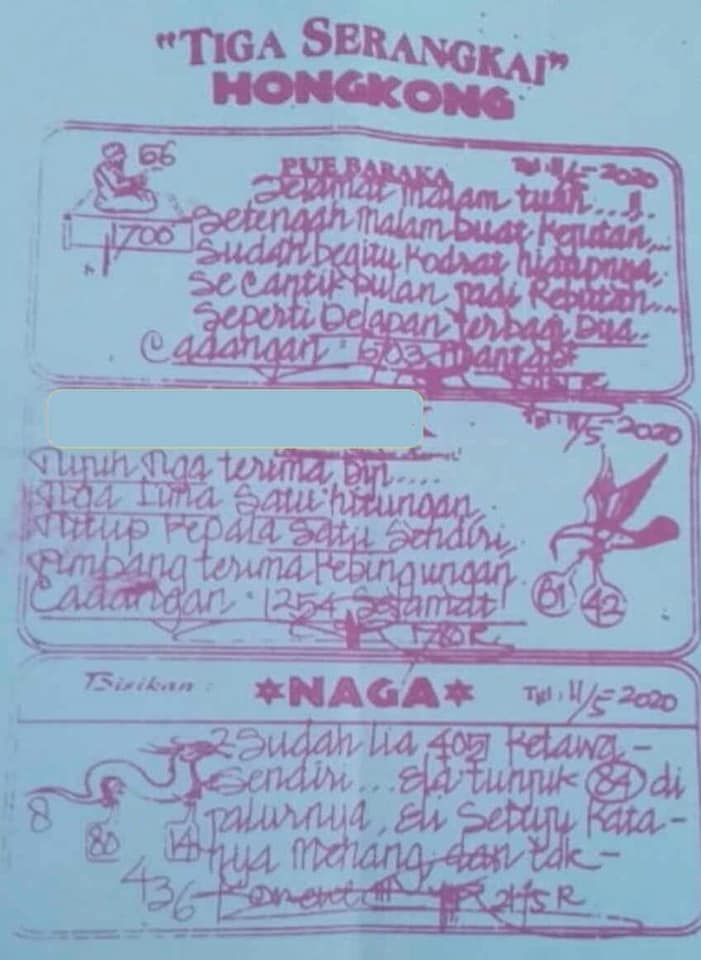 "TIGA SERANGKAI"
HONGKONG
66
PUE BARAKA
Tgl 11/5-2020
Selamat malam tuan...!!
1700
Setengah malam buat Keputan...
Sudah begitu Kodrat hidupnya,
Se Cantik bulan jadi Rebutan...
Seperti Delapan terbagi Dua..
Cadangan: 6703 Mantap
Tgl: 11/5-2020
Tujuh Tiga terima Biji....
Tiga Lima Satu hitungan,
Tutup Kepala Satu Sendiri,
Timbang terima Kebingungan
Cadangan: 1254 Selamat!
61 42
1780 R
Bisikan:
NAGA
Tgl: 11/5-2020
2 Sudah lia 4051 Ketawa-
Sendiri... dia tunjuk 84 di
8
palurnya, di Setuju Kata-
80 14
nya Menang, dan tak-
436